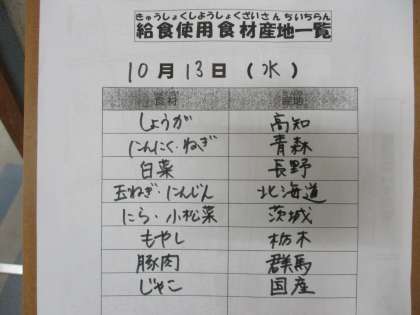 きゅうしょくしようしょくざいさんちいちらん
給食使用食材産地一覧
10月13日(水)
食材 産地
しょうが 高知
にんにく・ねぎ 青森
白菜 長野
玉ねぎ・にんじん 北海道
にら・小松菜 茨城
もやし 栃木
豚肉 群馬
じゃこ 国産